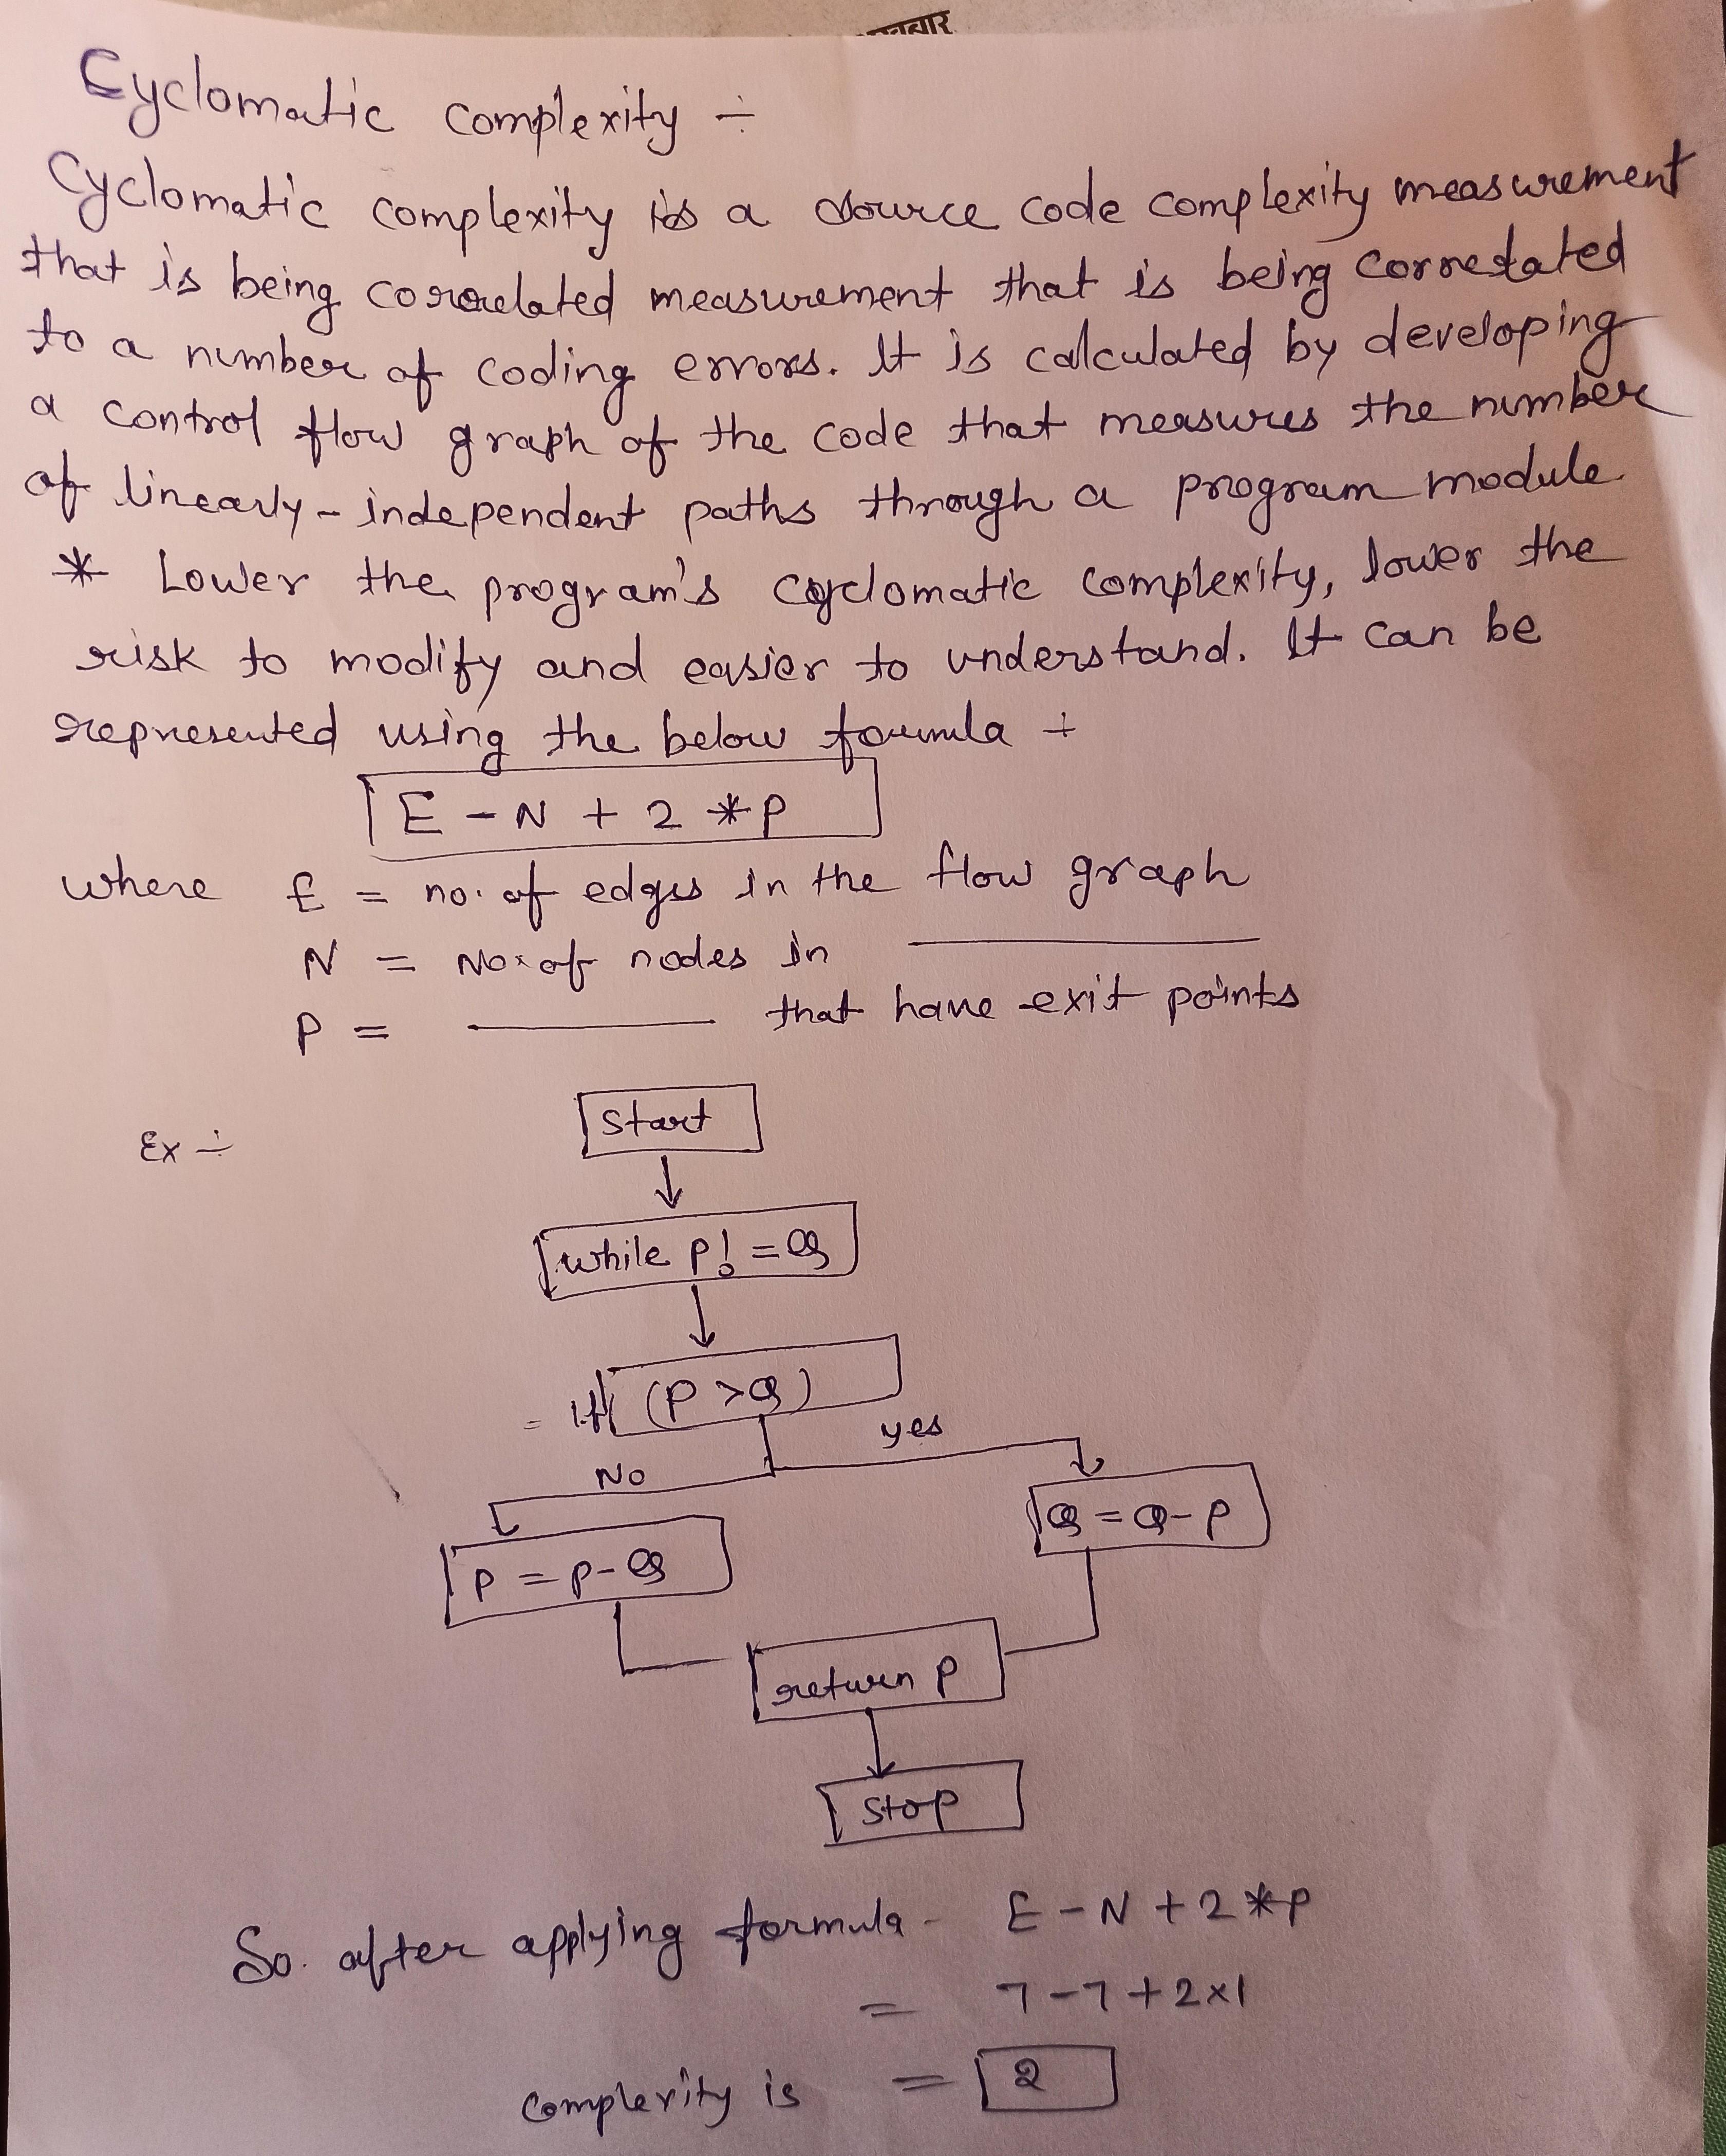 Cyclomatic complexity ÷
Cyclomatic complexity is a source code complexity measurement
that is being corraelated measurement that is being correlated
to a number of coding errors. It is calculated by developing
a control flow graph of the code that measures the number
of linearly-independent paths through a program module
* Lower the program's cyclomatic complexity, lower the
risk to modify and easier to understand. It can be
represented using the below formula ÷
E - N + 2 * P
where E = no. of edges in the flow graph
N = No. of nodes in ————
P = ———— that have exit points
Ex ÷
Start
while P! = Q
If (P > Q)
yes
No
Q = Q - P
P = P - Q
return P
Stop
So after applying formula - E - N + 2 * P
= 7 - 7 + 2 x 1
complexity is = 2